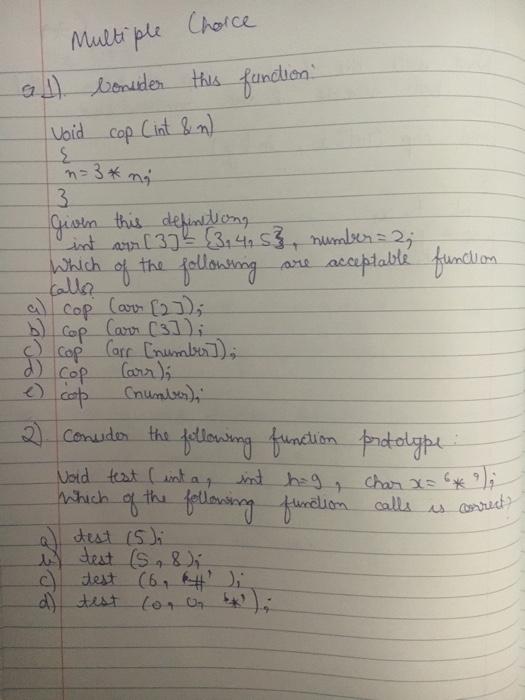 Multiple Choice
Q 1). Consider this function:
Void cop (int & n)
{
n = 3 * n;
}
Given this definition,
int arr [3] = {3, 4, 5}, number = 2;
Which of the following are acceptable function
calls?
a) cop (arr [2]);
b) cop (arr [3]);
c) cop (arr [number]);
d) cop (arr);
e) cop (number);
2) Consider the following function prototype :
Void test ( int a, int h=9, char x= '*');
Which of the following function calls is correct?
a) test (5);
b) test (5, 8);
c) test (6, '#' );
d) test (0, 0, '*');